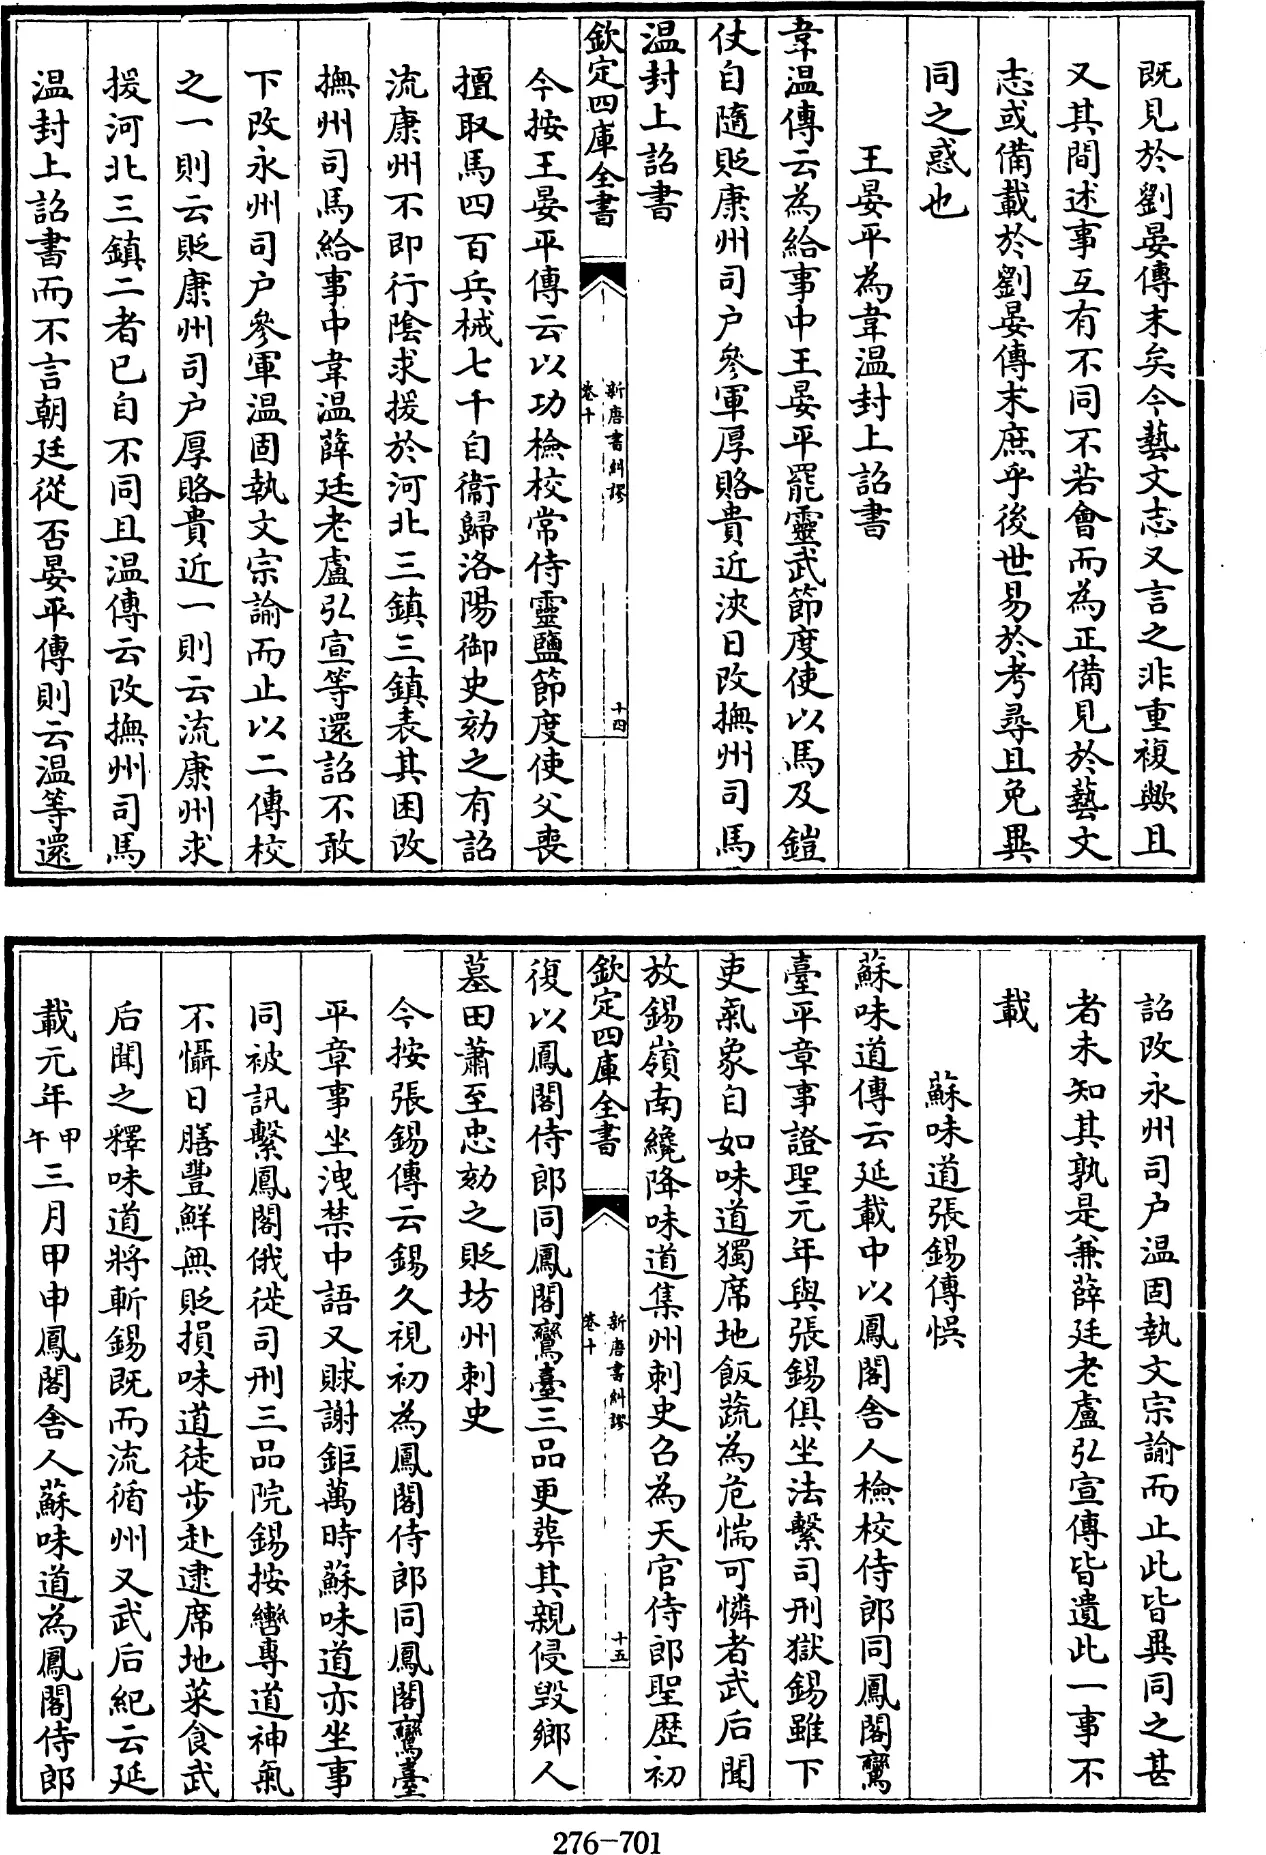 既見於劉晏傳末矣今藝文志又言之非重複歟且
又其間述事互有不同不若會而為正備見於藝文
志或備載於劉晏傳末庶乎後世易於考尋且免異
同之惑也
王晏平為韋温封上詔書
韋温傳云為給事中王晏平罷靈武節度使以馬及鎧
仗自隨貶康州司户參軍厚賂貴近浹日改撫州司馬
温封上詔書
欽定四庫全書
新唐書糾謬
卷十
十四
今按王晏平傳云以功檢校常侍靈鹽節度使父喪
擅取馬四百兵械七千自衞歸洛陽御史劾之有詔
流康州不即行陰求援於河北三鎮三鎮表其困改
撫州司馬給事中韋温薛廷老盧弘宣等還詔不敢
下改永州司户參軍温固執文宗諭而止以二傳校
之一則云貶康州司户厚賂貴近一則云流康州求
援河北三鎮二者已自不同且温傳云改撫州司馬
温封上詔書而不言朝廷從否晏平傳則云温等還
詔改永州司户温固執文宗諭而止此皆異同之甚
者未知其孰是兼薛廷老盧弘宣傳皆遺此一事不
載
蘇味道張錫傳悞
蘇味道傳云延載中以鳳閣舍人檢校侍郎同鳳閣鸞
臺平章事證聖元年與張錫俱坐法繫司刑獄錫雖下
吏氣象自如味道獨席地飯蔬為危惴可憐者武后聞
放錫嶺南纔降味道集州刺史召為天官侍郎聖歴初
欽定四庫全書
新唐書糾謬
卷十
十五
復以鳳閣侍郎同鳳閣鸞臺三品更葬其親侵毁鄉人
墓田蕭至忠劾之貶坊州刺史
今按張錫傳云錫久視初為鳳閣侍郎同鳳閣鸞臺
平章事坐洩禁中語又賕謝鉅萬時蘇味道亦坐事
同被訊繫鳳閣俄徙司刑三品院錫按轡專道神氣
不懾日膳豐鮮無貶損味道徒步赴逮席地菜食武
后聞之釋味道將斬錫既而流循州又武后紀云延
載元年甲午三月甲申鳳閣舍人蘇味道為鳳閣侍郎
276-701